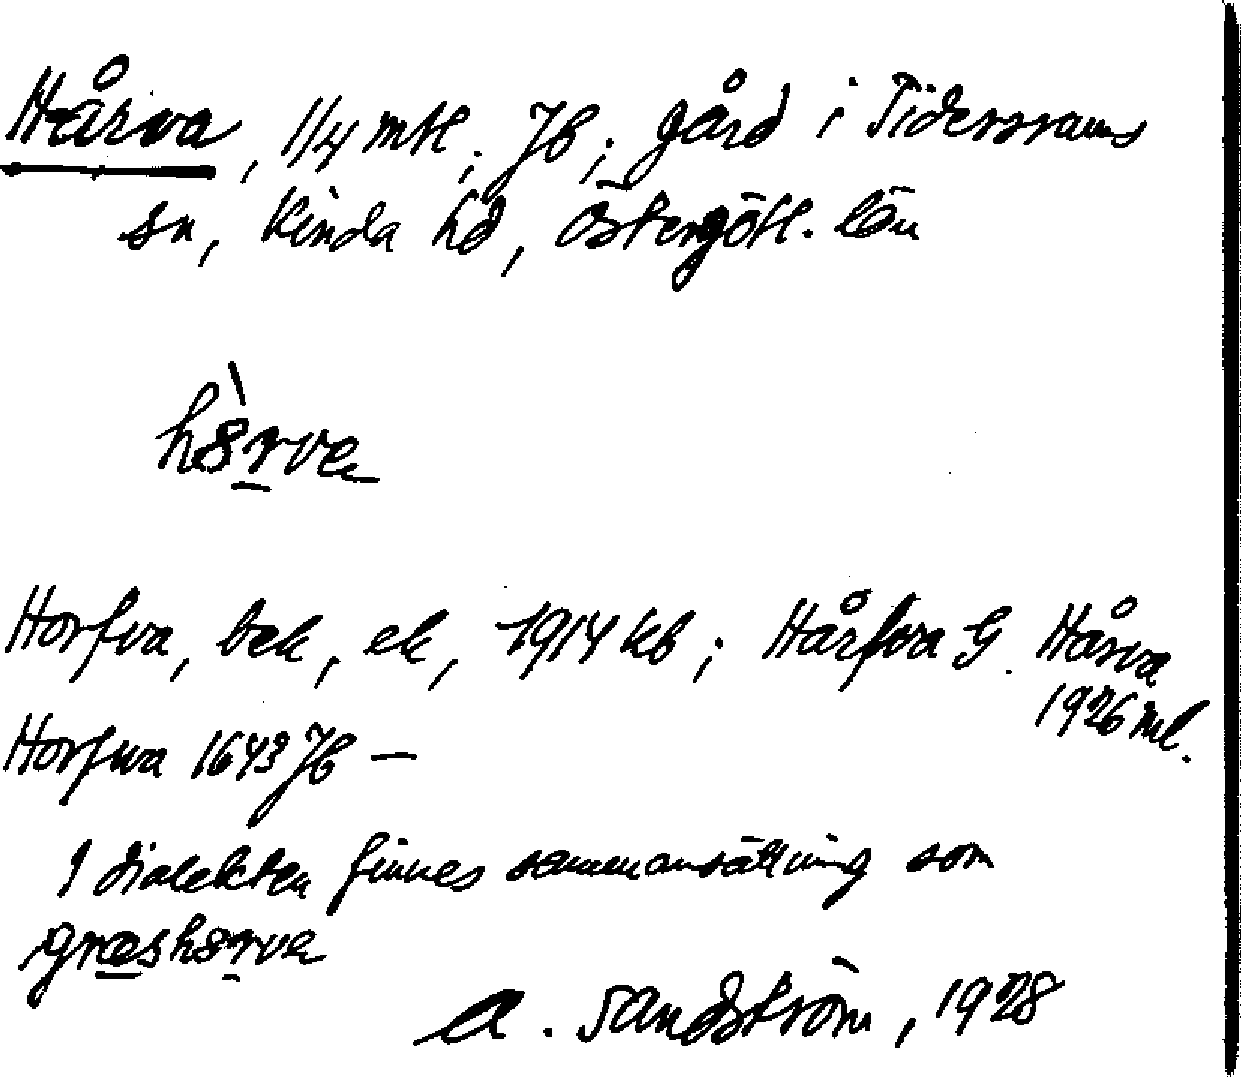 Hårva, 1/4 mtl, Jb, gård i Tidersrums
sn, Kinda hd, Östergötl. län
hȣ̀rva
Horfva, bek, ek, 1914 kb; Hårfva G. Hårva
1926 ml.
Horfwa 1643 Jb —
I dialekten finnes sammansättning som
græshȣrva
A. Sandström, 1928